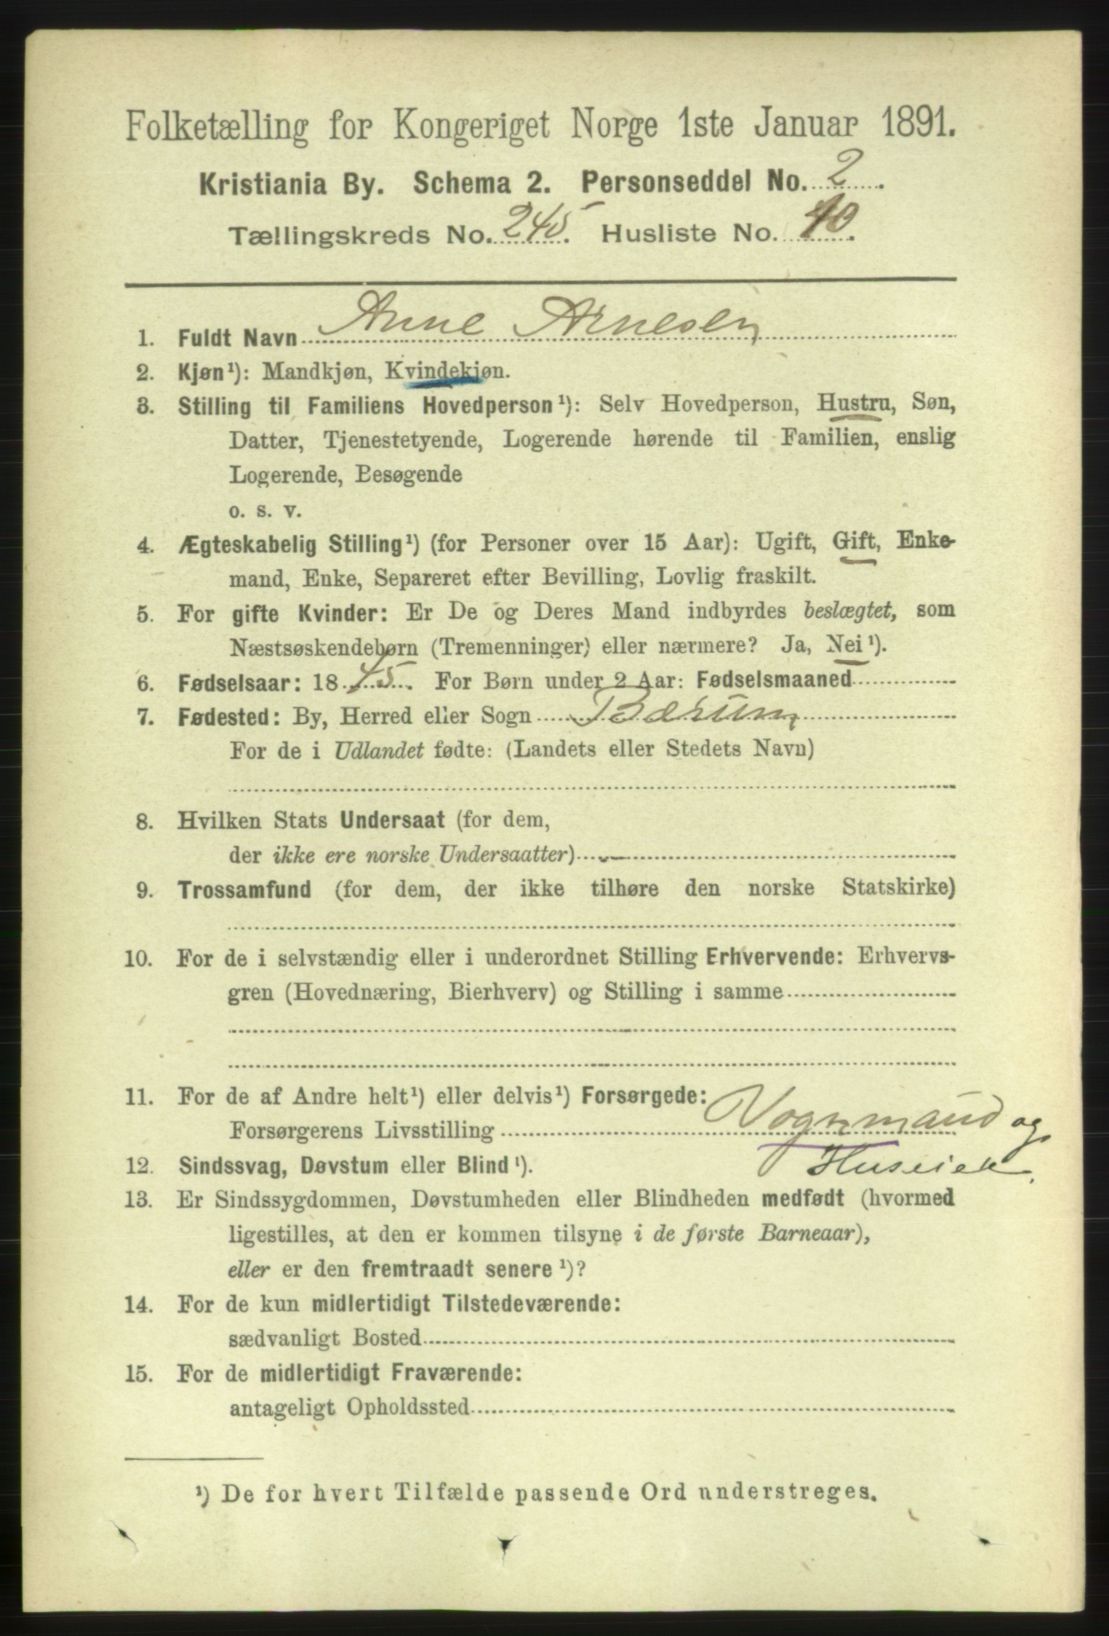 Folketælling for Kongeriget Norge 1ste Januar 1891.
Kristiania By. Schema 2. Personseddel No. 2.
Tællingskreds No. 245. Husliste No. 10.
1. Fuldt Navn Anne Arnesen
2. Kjøn¹): Mandkjøn, Kvindekjøn.
3. Stilling til Familiens Hovedperson¹): Selv Hovedperson, Hustru, Søn,
Datter, Tjenestetyende, Logerende hørende til Familien, enslig
Logerende, Besøgende
o. s. v.
4. Ægteskabelig Stilling¹) (for Personer over 15 Aar): Ugift, Gift, Enke-
mand, Enke, Separeret efter Bevilling, Lovlig fraskilt.
5. For gifte Kvinder: Er De og Deres Mand indbyrdes beslægtet, som
Næstsøskendebørn (Tremenninger) eller nærmere? Ja, Nei¹).
6. Fødselsaar: 1845. For Børn under 2 Aar: Fødselsmaaned
7. Fødested: By, Herred eller Sogn Bærum
For de i Udlandet fødte: (Landets eller Stedets Navn)
8. Hvilken Stats Undersaat (for dem,
der ikke ere norske Undersaatter)
9. Trossamfund (for dem, der ikke tilhøre den norske Statskirke)
10. For de i selvstændig eller i underordnet Stilling Erhvervende: Erhvervs-
gren (Hovednæring, Bierhverv) og Stilling i samme
11. For de af Andre helt¹) eller delvis¹) Forsørgede:
Forsørgerens Livsstilling Vognmand og
Huseier
12. Sindssvag, Døvstum eller Blind¹).
13. Er Sindssygdommen, Døvstumheden eller Blindheden medfødt (hvormed
ligestilles, at den er kommen tilsyne i de første Barneaar),
eller er den fremtraadt senere¹)?
14. For de kun midlertidigt Tilstedeværende:
sædvanligt Bosted
15. For de midlertidigt Fraværende:
antageligt Opholdssted
¹) De for hvert Tilfælde passende Ord understreges.